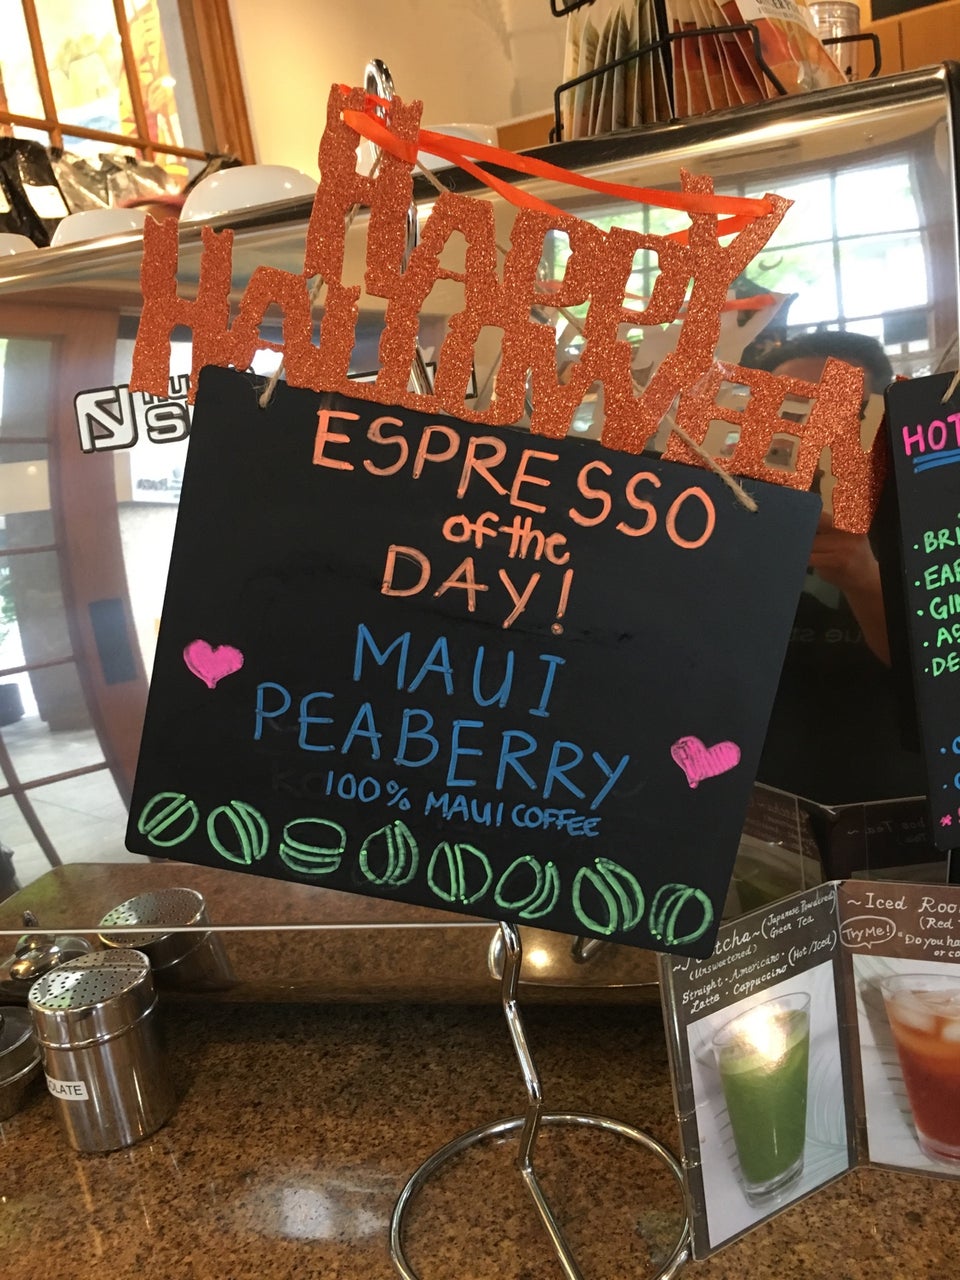 HAPPY
HALLOWEEN
ESPRESSO
of the
DAY!
MAUI
PEABERRY
100% MAUI COFFEE
HOT
OLATE
(Japanese Powdered
Green Tea
(Unsweetened)
Straight · Americano · (Hot/Iced)
Latte · Cappuccino
~Iced
(Red
Try Me!
"Do you ha
or co